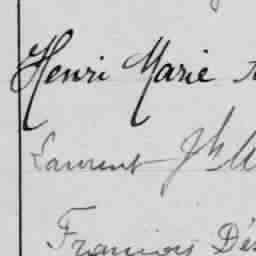 Henri Marie
Laurent
François Dés